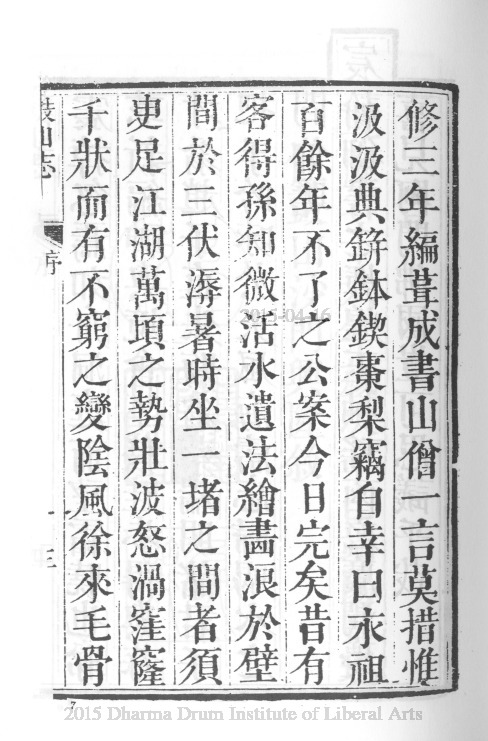 修三年編葺成書山僧一言莫措惟
汲汲典缾鉢鍥棗梨竊自幸曰永祖
百餘年不了之公案今日完矣昔有
客得孫知微活水遺法繪畵浪於壁
間於三伏溽暑時坐一堵之間者須
吏足江湖萬頃之勢壯波怒渦窪窿
千狀而有不窮之變陰風徐來毛骨
鼓山志
序
三
2015-04-16
7
2015 Dharma Drum Institute of Liberal Arts